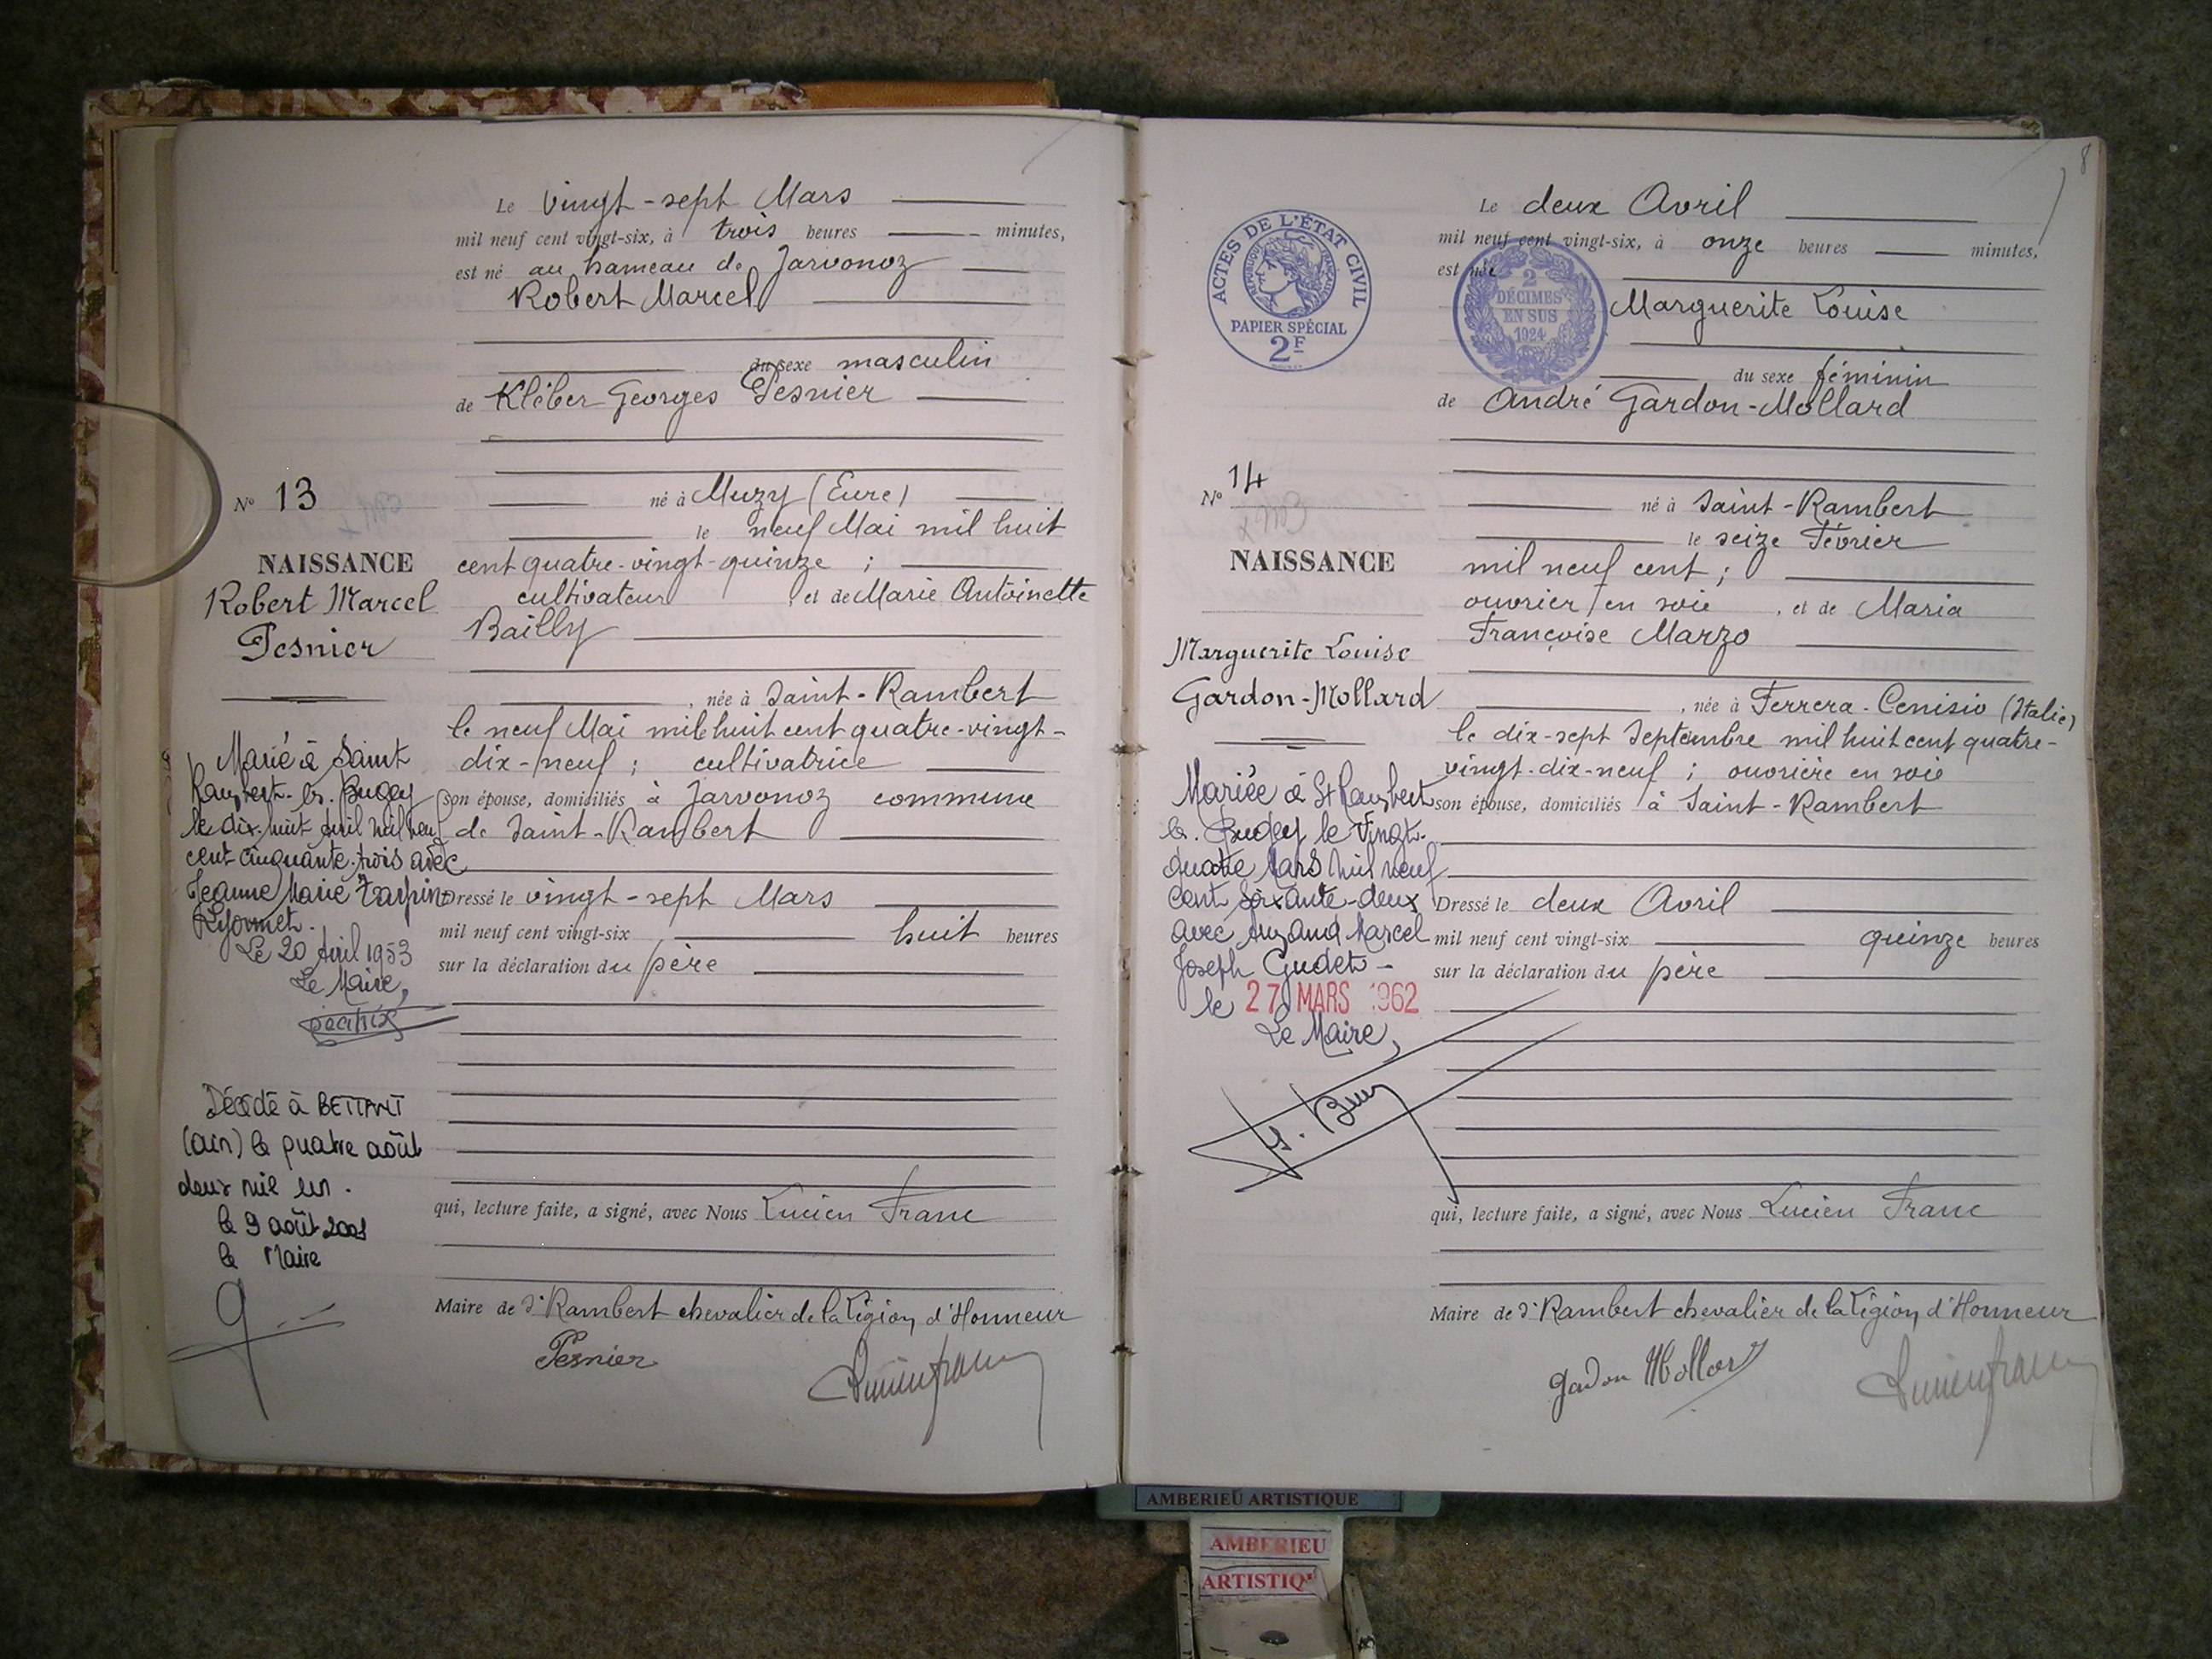 Le vingt-sept Mars
mil neuf cent vingt-six, à trois heures minutes,
est né au hameau de Jarvonoz
Robert Marcel
du sexe masculin
de Kléber Georges Pesnier
né à Muzy (Eure)
le neuf Mai mil huit
cent quatre-vingt-quinze ;
cultivateur, et de Marie Antoinette
Bailly
, née à Saint-Rambert
le neuf Mai mil huit cent quatre-vingt-
dix-neuf ; cultivatrice
son épouse, domiciliés à Jarvonoz commune
de Saint-Rambert
Dressé le vingt-sept Mars
mil neuf cent vingt-six huit heures
sur la déclaration du père
qui, lecture faite, a signé, avec Nous Lucien Franc
Maire de St Rambert chevalier de la Légion d'Honneur
Pesnier
Lucien franc
N° 13
NAISSANCE
Robert Marcel
Pesnier
Marié à Saint
Rambert-en-Bugey
le dix-huit avril mil neuf
cent cinquante-trois avec
Jeanne Marie Tarpin
Le 20 Avril 1953
Le Maire,
Décédé à BETTANT
(ain) le quatre août
deux mil un.
le 9 août 2001
le Maire
8
Le deux Avril
mil neuf cent vingt-six, à onze heures minutes,
est née
Marguerite Louise
du sexe féminin
de André Gardon-Mollard
né à Saint-Rambert
le seize Février
mil neuf cent ;
ouvrier en soie, et de Maria
Françoise Marzo
, née à Ferrera-Cenisio (Italie)
le dix-sept Septembre mil huit cent quatre-
vingt-dix-neuf ; ouvrière en soie
son épouse, domiciliés à Saint-Rambert
Dressé le deux Avril
mil neuf cent vingt-six quinze heures
sur la déclaration du père
qui, lecture faite, a signé, avec Nous Lucien Franc
Maire de St Rambert chevalier de la Légion d'Honneur
Gardon Mollard
Lucien franc
ACTES DE L'ÉTAT CIVIL
RÉPUBLIQUE FRANÇAISE
PAPIER SPÉCIAL
2F
2
DÉCIMES
EN SUS
1924
N° 14
NAISSANCE
Marguerite Louise
Gardon-Mollard
Mariée à St Rambert
en Bugey le Vingt-
quatre Mars mil neuf
cent soixante-deux
avec Armand Marcel
Joseph Gudet
le 27 MARS 1962
Le Maire,
AMBERIEU ARTISTIQUE
AMBERIEU
ARTISTIQ